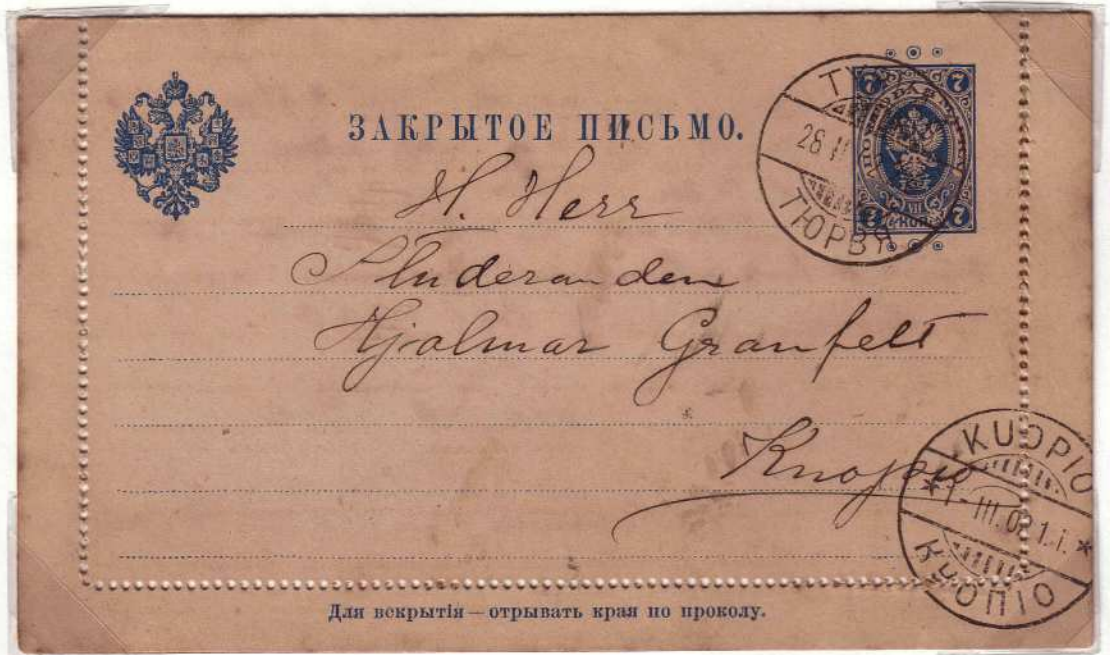 ЗАКРЫТОЕ ПИСЬМО.
7 7
7 7
28 II
ТЮРВЯ
H. Herr
Studeranden
Hjalmar Granfelt
Kuopio
KUOPIO
1-III.0 1.i.
КУОПІО
Для вскрытія — отрывать края по проколу.